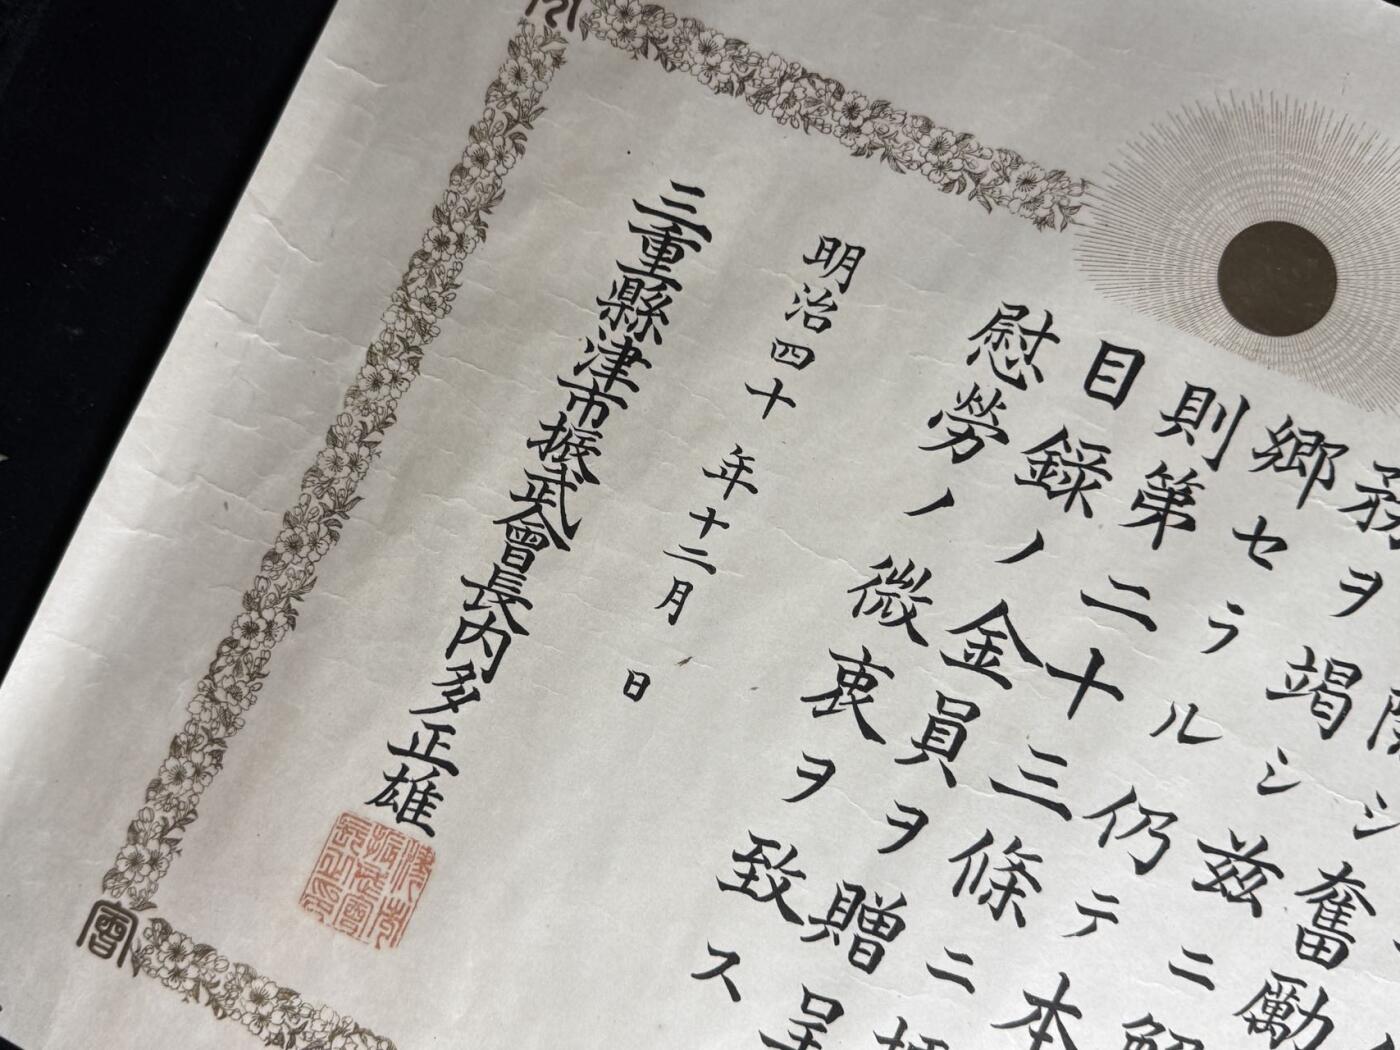 シ奮勵
務ヲ竭シ茲ニ
郷セラル仍テ本
則第二十三條ニ
目録ノ金員ヲ贈呈
慰勞ノ微衷ヲ致ス
明治四十年十二月 日
三重縣津市振武會長内多正雄
津市振武會長之印
會